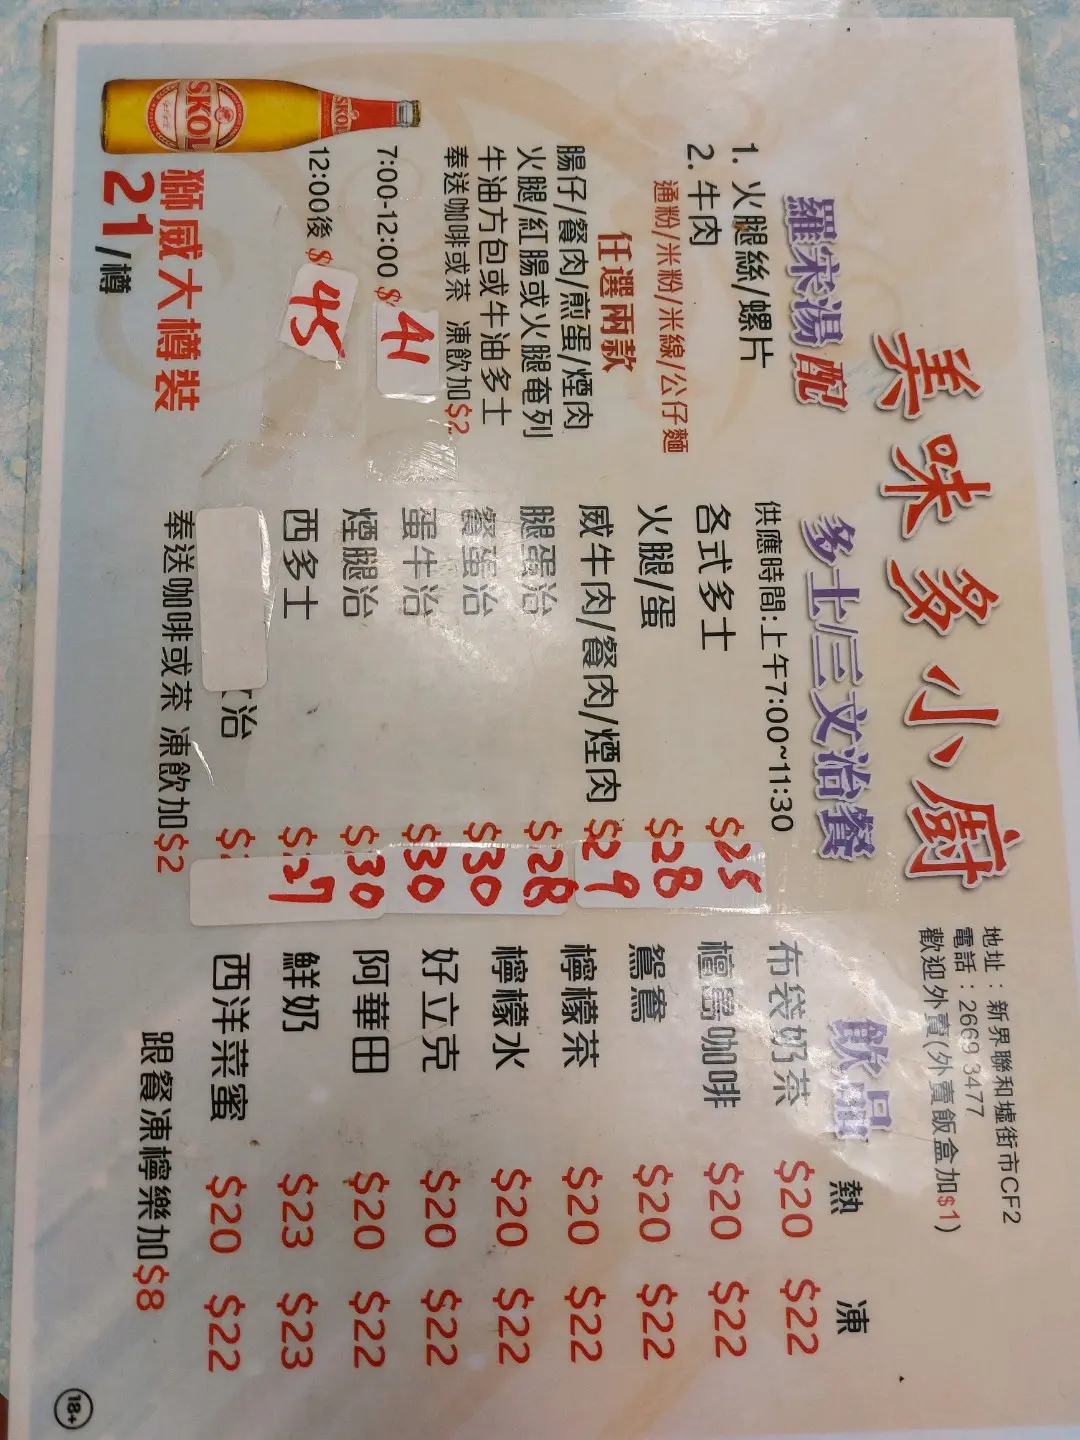 美味多小廚
地址：新界聯和墟街市CF2
電話：2669 3477
歡迎外賣(外賣飯盒加$1)
羅宋湯 配
1. 火腿絲/螺片
2. 牛肉
通粉/米粉/米線/公仔麵
任選兩款
腸仔/餐肉/煎蛋/煙肉
火腿/紅腸或火腿奄列
牛油方包或牛油多士
奉送咖啡或茶 凍飲加$2
7:00-12:00 $41
12:00後 $45
SKOL
SKOL
獅威大樽裝
21/樽
多士/三文治餐
供應時間:上午7:00~11:30
各式多士 $25
火腿/蛋 $28
威牛肉/餐肉/煙肉 $29
腿蛋治 $28
餐蛋治 $30
蛋牛治 $30
煙腿治 $30
西多士 $27
治 $
奉送咖啡或茶 凍飲加$2
飲品 熱 凍
布袋奶茶 $20 $22
檀島咖啡 $20 $22
鴛鴦 $20 $22
檸檬茶 $20 $22
檸檬水 $20 $22
好立克 $20 $22
阿華田 $20 $22
鮮奶 $23 $23
西洋菜蜜 $20 $22
跟餐凍檸樂加$8
18+